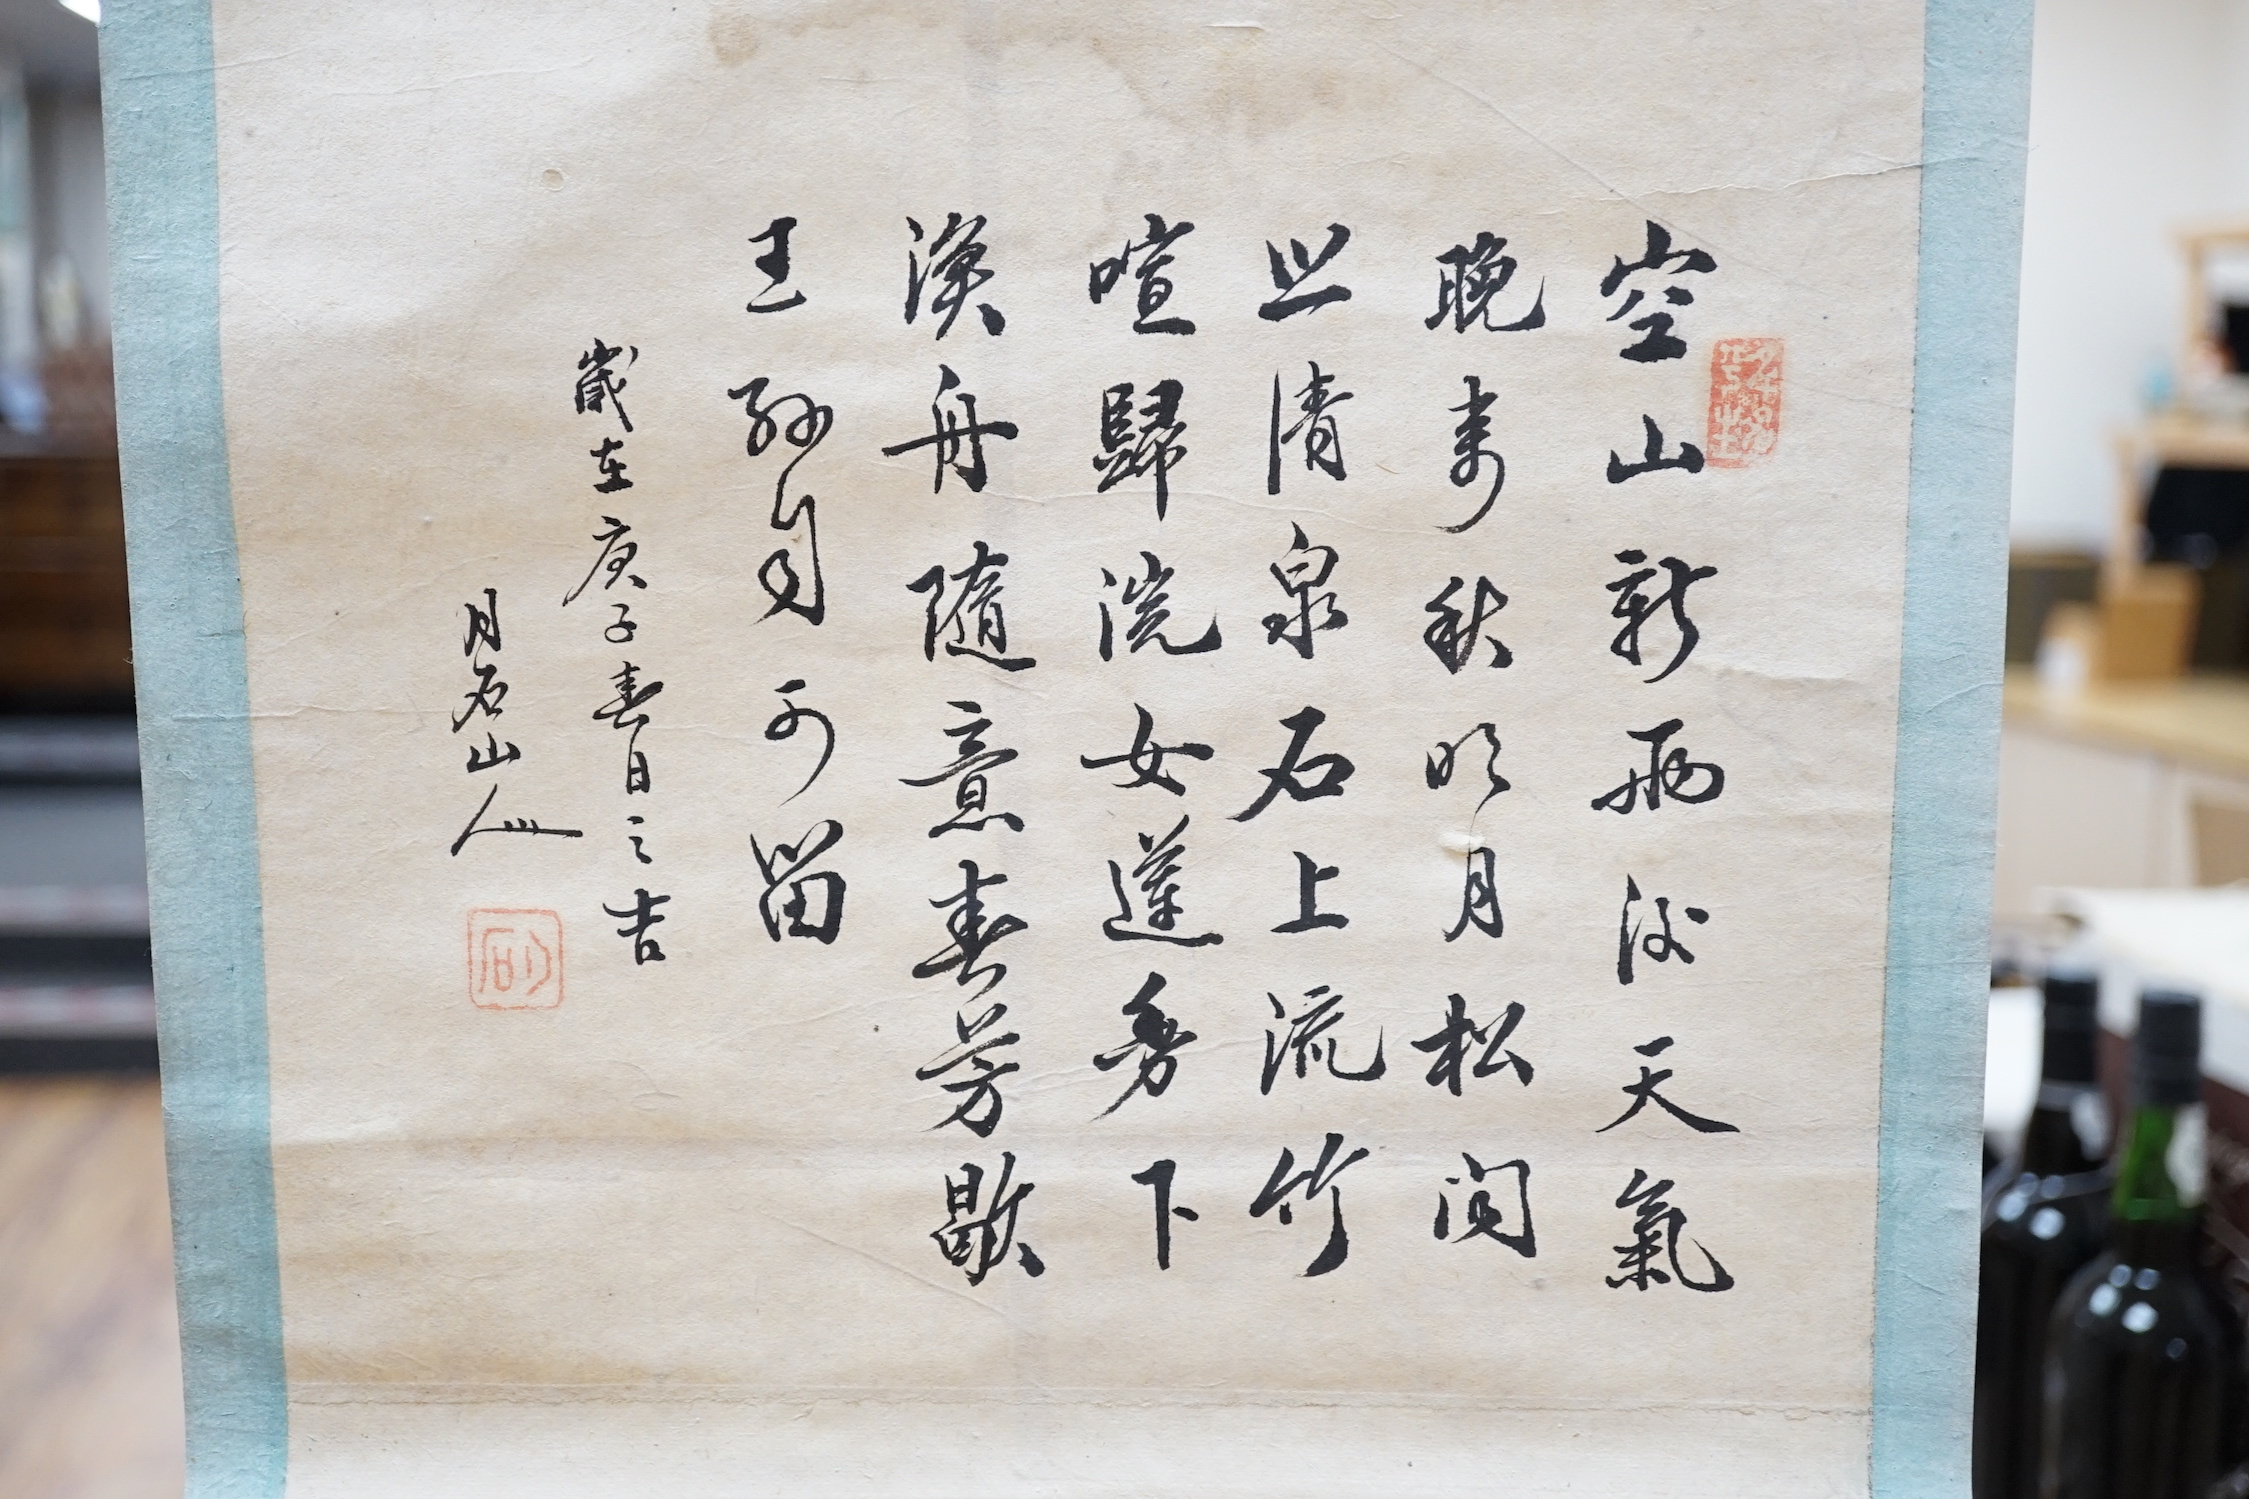 空山新雨後天氣
晚來秋明月松間
照清泉石上流竹
喧歸浣女蓮動下
漁舟隨意春芳歇
王孫自可留
歲在庚子春日之吉
月石山人
月石